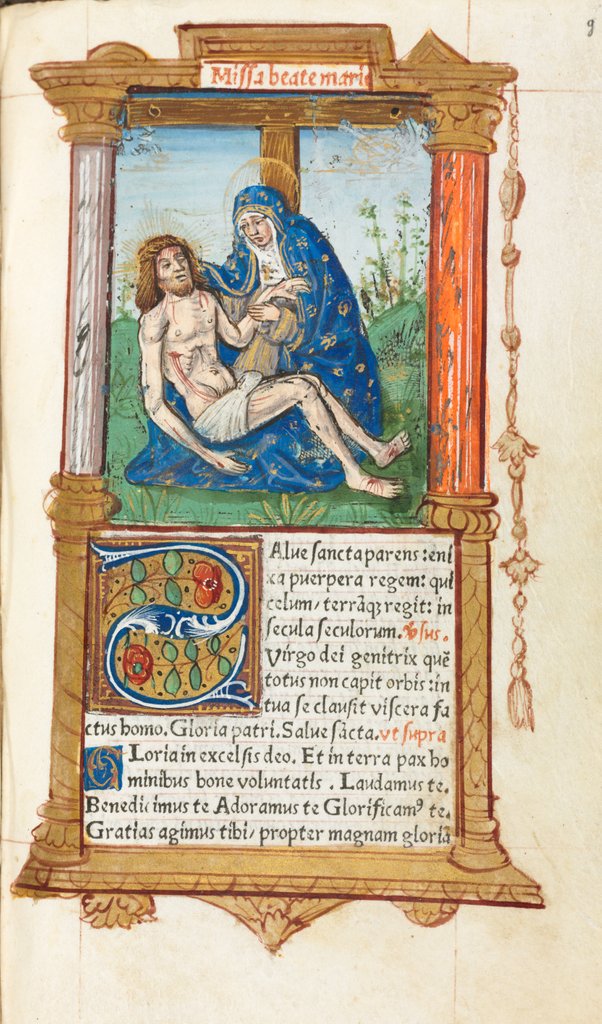 9
Missa beate marie
SAlve sancta parens : eni
xa puerpera regem: qui
celum/ terrãqꝫ regit: in
secula seculorum. V̾sus.
Virgo dei genitrix quē
totus non capit orbis : in
tua se clausit viscera fa
ctus homo. Gloria patri. Salve sācta. ut supra
GLoria in excelsis deo. Et in terra pax ho
minibus bone voluntatis . Laudamus te.
Benedicimus te Adoramus te Glorificamꝰ te.
Gratias agimus tibi/ propter magnam gloriā